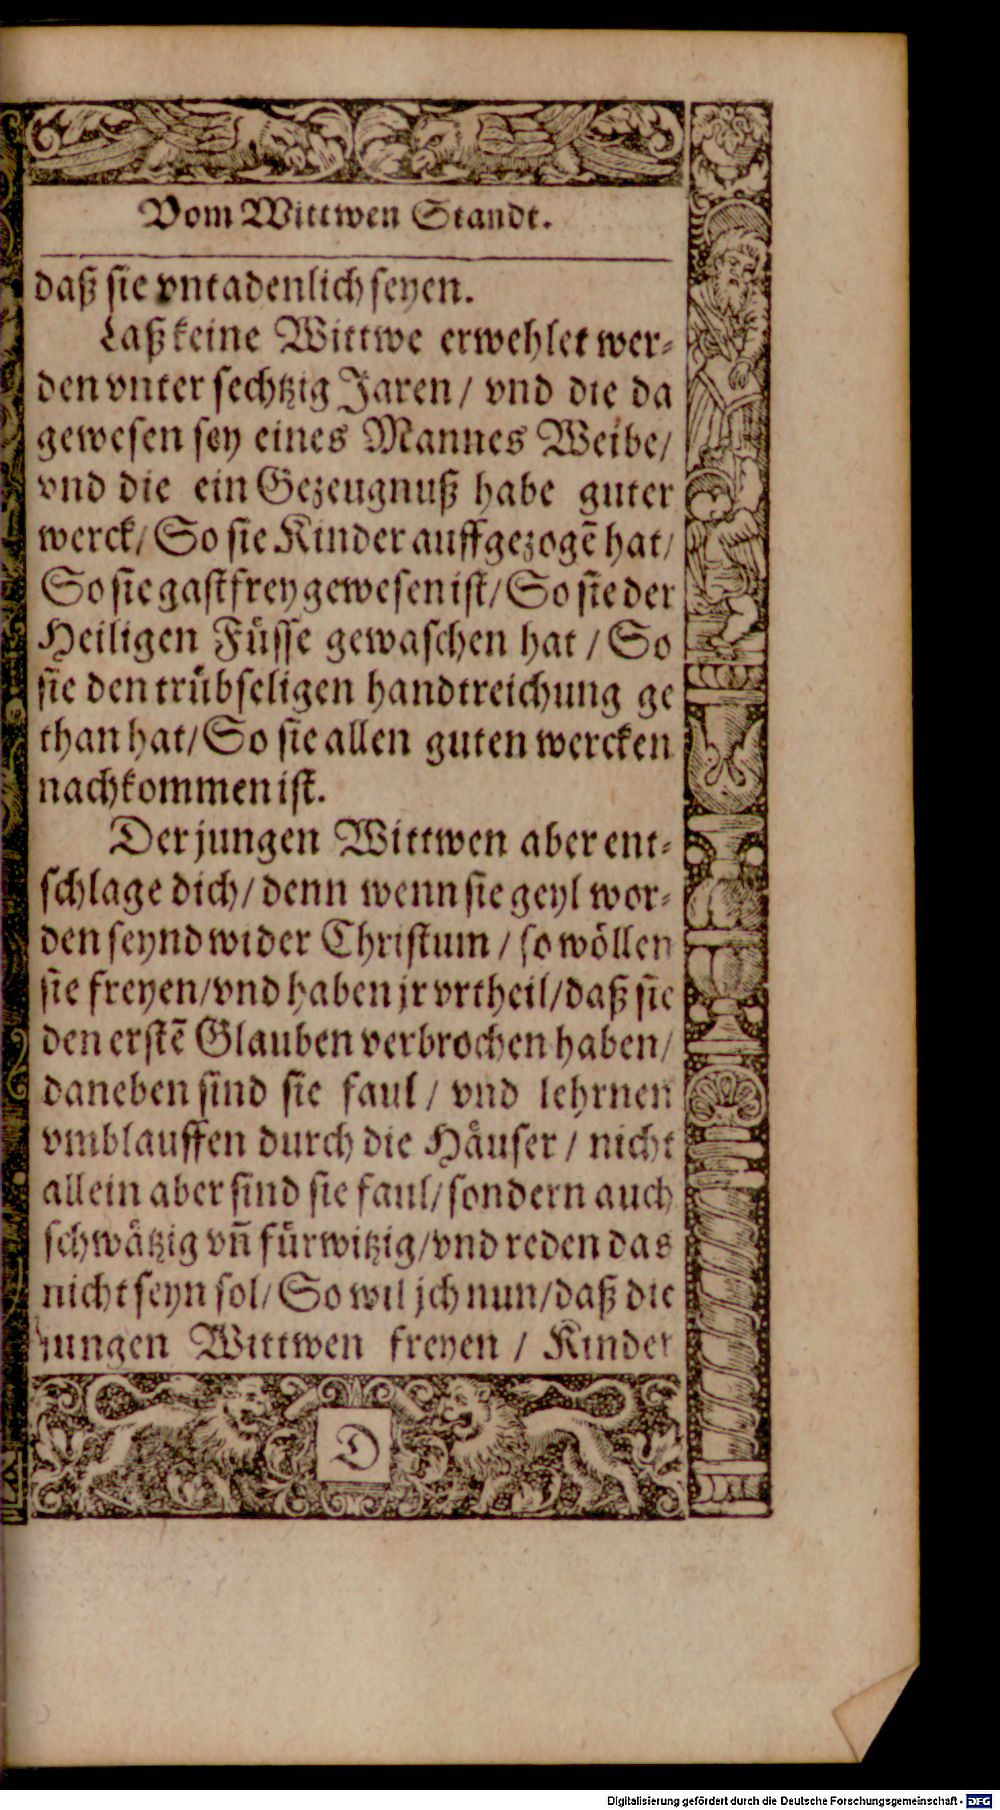 Vom Wittwen Standt.
daß sie vntadenlich seyen.
Laß keine Wittwe erwehlet wer-
den vnter sechtzig Jaren / vnd die da
gewesen sey eines Mannes Weibe /
vnd die ein Gezeugnuß habe guter
werck / So sie Kinder auffgezogẽ hat /
So sie gastfrey gewesen ist / So sie der
Heiligen Fuͤsse gewaschen hat / So
sie den truͤbseligen handtreichung ge
than hat / So sie allen guten wercken
nachkommen ist.
Der jungen Wittwen aber ent-
schlage dich / denn wenn sie geyl wor-
den seynd wider Christum / so woͤllen
sie freyen / vnd haben jr vrtheil / daß sie
den erstẽ Glauben verbrochen haben /
daneben sind sie faul / vnd lehrnen
vmblauffen durch die Haͤuser / nicht
allein aber sind sie faul / sondern auch
schwaͤtzig vñ fuͤrwitzig / vnd reden das
nicht seyn sol / So wil jch nun / daß die
jungen Wittwen freyen / Kinder
D
Digitalisierung gefördert durch die Deutsche Forschungsgemeinschaft - DFG